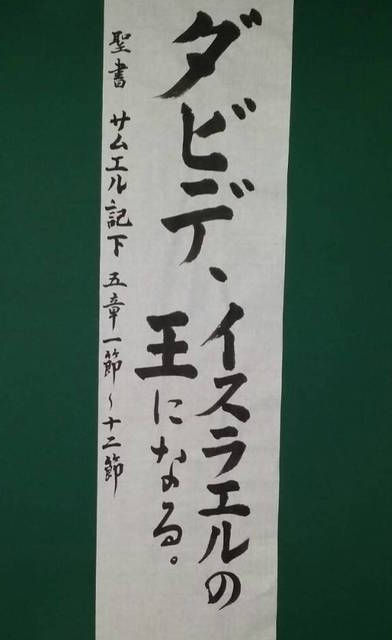 ダビデ、イスラエルの
王になる。
聖書 サムエル記下 五章一節~十二節